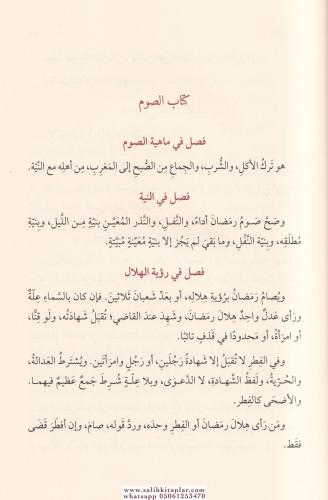 كتاب الصوم
فصل في ماهية الصوم
هو تَركُ الأكلِ، والشُّربِ، والجِماعِ مِن الصُّبحِ إلى المَغرِبِ، مِن أهلِه مع النيّة.
فصل في النية
وصَحَّ صَومُ رمَضانَ أداءً، والنَّفلِ، والنَّذرِ المُعَيَّنِ بنيّةٍ مِن اللَّيلِ، وبنيّةٍ
مُطلَقةٍ، وبنيّةِ النَّفْلِ، وما بَقِيَ لم يَجُزْ إلا بنيّةٍ مُعيَّنةٍ مُبَيَّتةٍ.
فصل في رؤية الهلال
ويُصامُ رَمَضانُ برُؤيةِ هِلالِه، أو بعَدِّ شَعبانَ ثَلاثينَ. فإن كان بالسَّماءِ عِلّةٌ
ورَأى عَدلٌ واحدٌ هِلالَ رمَضانَ، وشَهِدَ عندَ القاضي؛ تُقبَلُ شَهادَتُه، ولو قِنًّا،
أو امرَأةً، أو مَحدودًا في قَذفٍ تائبًا.
وفي الفِطرِ لا تُقبَلُ إلا شَهادةُ رَجلَينِ، أو رَجُلٍ وامرَأتَين. ويُشتَرطُ العَدالةُ،
والحُرّيةُ، ولَفظُ الشَّهادةِ، لا الدَّعوَى، وبلا عِلّةٍ شُرِطَ جَمعٌ عَظيمٌ فيهما.
والأضحَى كالفِطر.
ومَن رَأى هِلالَ رمَضانَ أو الفِطرِ وحدَه، ورِدَّ قولُه، صامَ، وإن أفطَرَ قَضَى
فقط.
www.salihkitaplar.com
whatsapp 05061255470